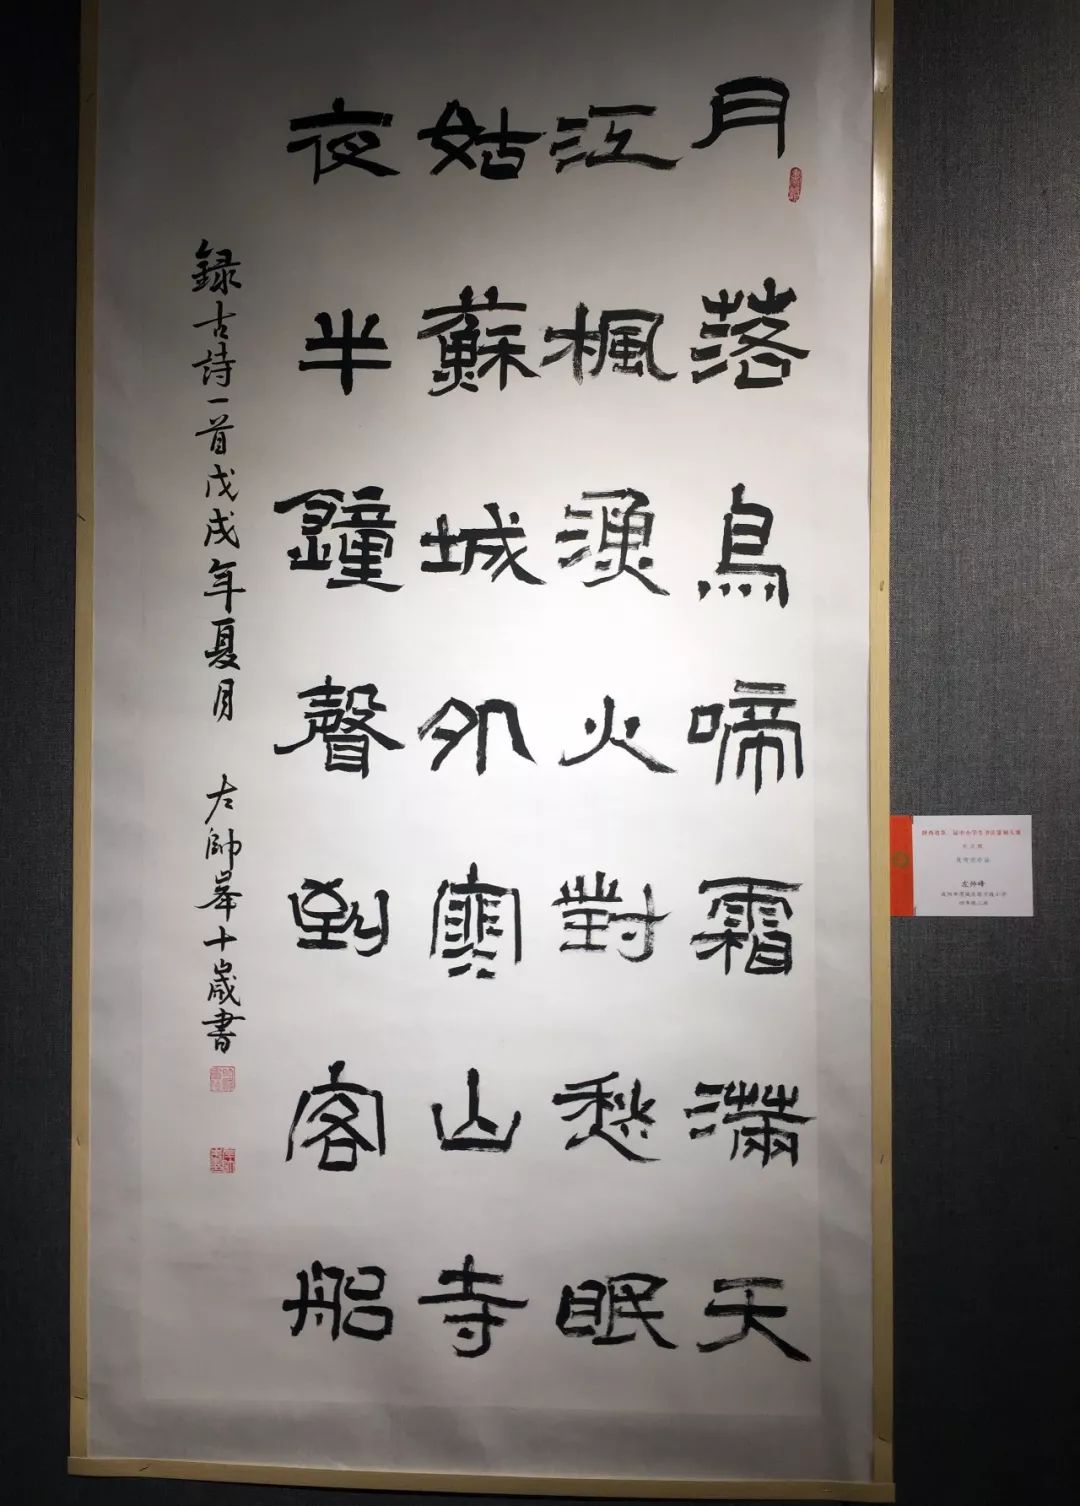 月落烏啼霜滿天
江楓漁火對愁眠
姑蘇城外寒山寺
夜半鐘聲到客船
録古詩一首戊戌年夏月 左帥峯十歲書
左帅峰